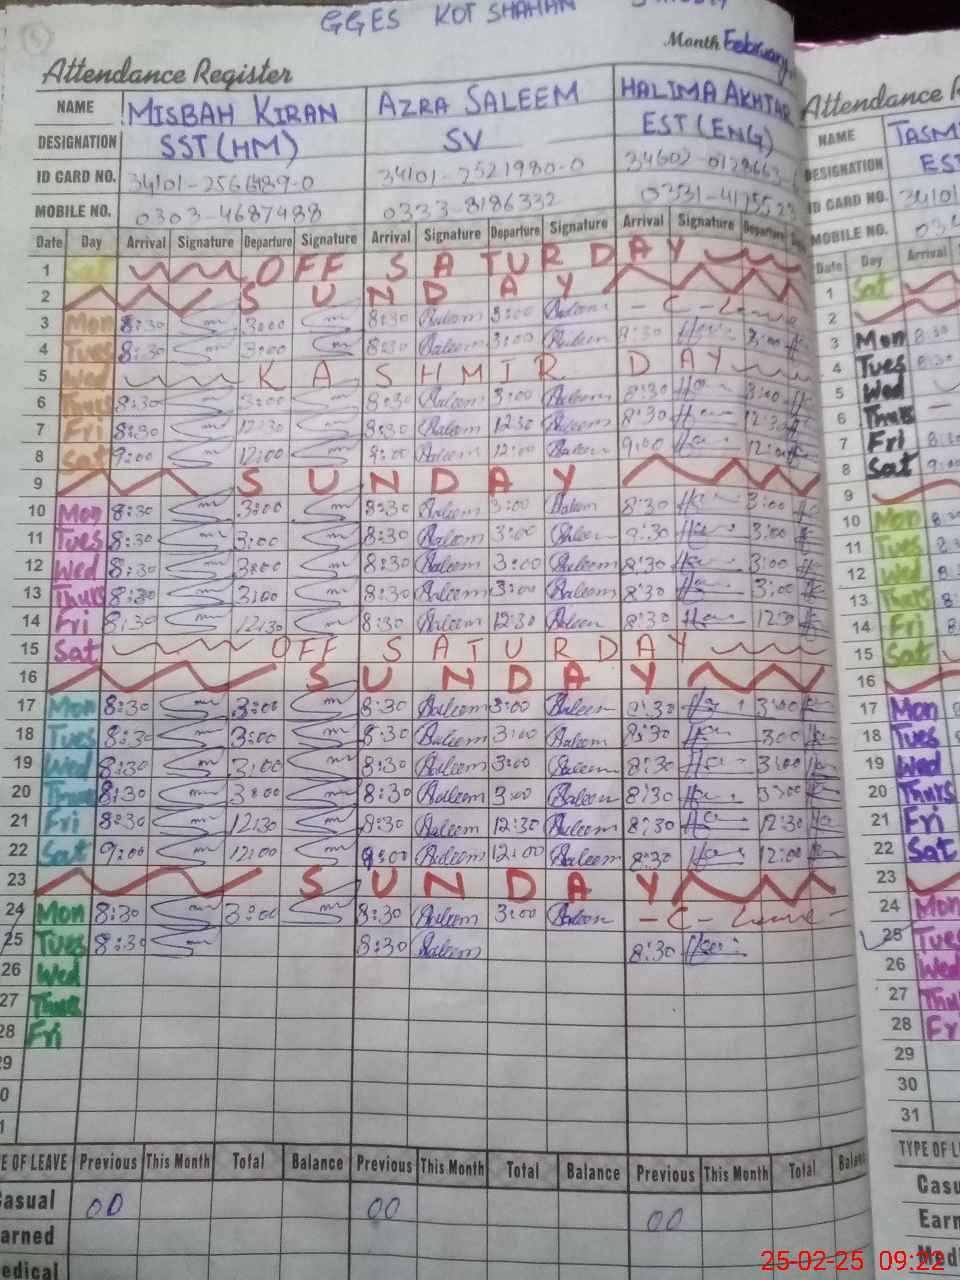 GGES KOT SHAHAN
Month February
Attendance Register
NAME MISBAH KIRAN AZRA SALEEM HALIMA AKHTAR
DESIGNATION SST (HM) SV EST (ENG)
ID CARD NO. 34101-2521980-0
MOBILE NO. 0303-4687488 0333-8186332
Date Day Arrival Signature Departure Signature Arrival Signature Departure Signature Arrival Signature Departure
1 Sat OFF SATURDAY
2 SUNDAY
3 Mon 8:30 3:00 8:30 Saleem 3:00 Saleem - C - Leave
4 Tues 8:30 3:00 8:30 Saleem 3:00 Saleem 8:30 3:00
5 Wed KASHMIR DAY
6 Thurs 8:30 3:00 8:30 Saleem 3:00 Saleem 8:30 3:00
7 Fri 8:30 12:30 8:30 Saleem 12:30 Saleem 8:30 12:30
8 Sat 9:00 12:00 9:00 Saleem 12:00 Saleem 9:00 12:00
9 SUNDAY
10 Mon 8:30 3:00 8:30 Saleem 3:00 Saleem 8:30 3:00
11 Tues 8:30 3:00 8:30 Saleem 3:00 Saleem 8:30 3:00
12 Wed 8:30 3:00 8:30 Saleem 3:00 Saleem 8:30 3:00
13 Thurs 8:30 3:00 8:30 Saleem 3:00 Saleem 8:30 3:00
14 Fri 8:30 12:30 8:30 Saleem 12:30 Saleem 8:30 12:30
15 Sat OFF SATURDAY
16 SUNDAY
17 Mon 8:30 3:00 8:30 Saleem 3:00 Saleem 8:30 3:00
18 Tues 8:30 3:00 8:30 Saleem 3:00 Saleem 8:30 3:00
19 Wed 8:30 3:00 8:30 Saleem 3:00 Saleem 8:30 3:00
20 Thurs 8:30 3:00 8:30 Saleem 3:00 Saleem 8:30 3:00
21 Fri 8:30 12:30 8:30 Saleem 12:30 Saleem 8:30 12:30
22 Sat 9:00 12:00 9:00 Saleem 12:00 Saleem 8:30 12:00
23 SUNDAY
24 Mon 8:30 3:00 8:30 Saleem 3:00 Saleem - C - Leave -
25 Tues 8:30 8:30 Saleem 8:30
26 Wed
27 Thurs
28 Fri
29
0
1
E OF LEAVE Previous This Month Total Balance Previous This Month Total Balance Previous This Month Total Balan
Casual 00 00 00
arned
edical
Attendance R
NAME TASM
DESIGNATION EST
ID CARD NO. 34101
MOBILE NO. 03
Date Day Arrival
1 Sat
2
3 Mon 8:30
4 Tues 8:30
5 Wed
6 Thurs
7 Fri 8:30
8 Sat 9:00
9
10 Mon
11 Tues
12 Wed
13 Thurs
14 Fri
15 Sat
16
17 Mon
18 Tues
19 Wed
20 Thurs
21 Fri
22 Sat
23
24 Mon
25 Tues
26 Wed
27 Thu
28 Fr
29
30
31
TYPE OF L
Casu
Earn
Med
25-02-25 09:22